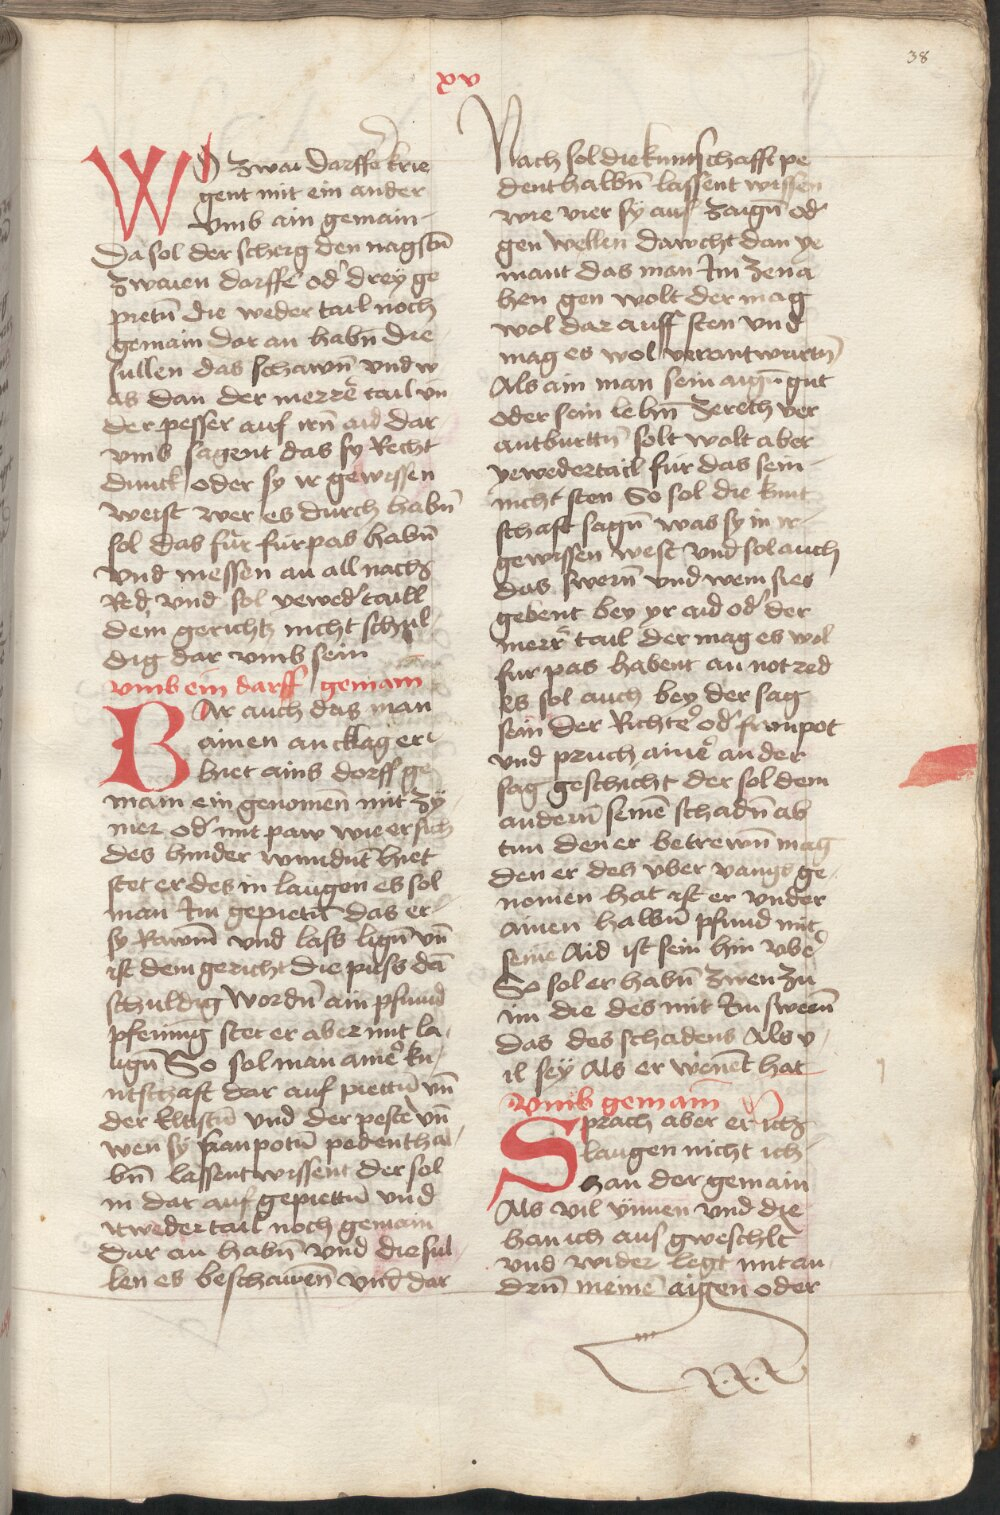 38
xv
Wo zwai dorffer krie
gent mit ein ander
vmb ain gemain
Da sol der scherg den nagstn̄
zwaien dorffē od' drey ge
pietn̄ die weder tail noch
gemain dar an habn̄ die
sullen das schawn̄ vnd w
as dan der merrē tail vn̄
der pesser auf irn̄ aid dar
vmb sagent das sy Recht
dunck oder sy ir gewissen
weist wer es durch habn̄
sol das für fürpas habn̄
vnd messen an all nachg
Red vnd sol yewed' taill
dem gerichtz nicht schul
dig dar vmb sein
vmb ein darff gemain
War auch das man
ainen an cklag er
hiet ains dorff ge
main ein genomen̄ mit zÿ
mer od' mit paw wie er sich
des hinder wundn̄ hiet
stet er des in laugen es sol
man Im gepietn̄ das er
sy Rawm̄ vnd lass lign̄ vn̄
ist dem gericht die puess dā
schuldig wordn̄ ain pfund
pfening stet er aber mit la
ugn̄ So sol man ainē ku
ntschaft dar auf piettn̄ vn̄
der Eltistn̄ vnd der peste vn̄
wen sy franpotn̄ pedenthal
bn̄ lassent wissent der sol
in dar auf gepiettn̄ vnd
ytweder tail noch gemain
dar an habn̄ vnd die sul
len es beschawen̄ vnd dar
Nach sol die kuntschafft pe
denthalbn̄ lassent wissen
wie vier sy auf zaign̄ od'
gen wellen dawcht dan ye
mant das man Im ze na
hen gen wolt der mag
wol dar auff sten vnd
mag es wol verantwurtn̄
Als ain man sein aign̄ gut
oder sein lehn̄ zerech ver
antburttn̄ solt wolt aber
yewedertail für das sein
nicht sten So sol die kunt
schaft sagn̄ was sy in ir
gewissen west vnd sol auch
das swern̄ vnd wem sies
gebent bey yr aid od' der
merr' tail der mag es wol
fur pas habent an not red
es sol auch bey der sag
sein der Richter od' fronpot
vnd pruch ainē an der
sag geschicht der sol dem
andern̄ seinē schadn̄ ab
tun den er betrewn̄ mag
den er des vber vangs ge
nomen hat ist er vnder
ainen halbn̄ pfund mit
seinē Aid ist sein hin vbe'
So sol er habn̄ zwen zu
im die des mit Im swern̄
das des schadens Als v
il sey Als er wenet hat
Vmb gemain
Sprach aber er ich
laugen nicht ich
han der gemain
Als vil ynnen vnd die
han ich aus gweschlt
vnd wider legt mit an
drn̄ meinē aigen oder